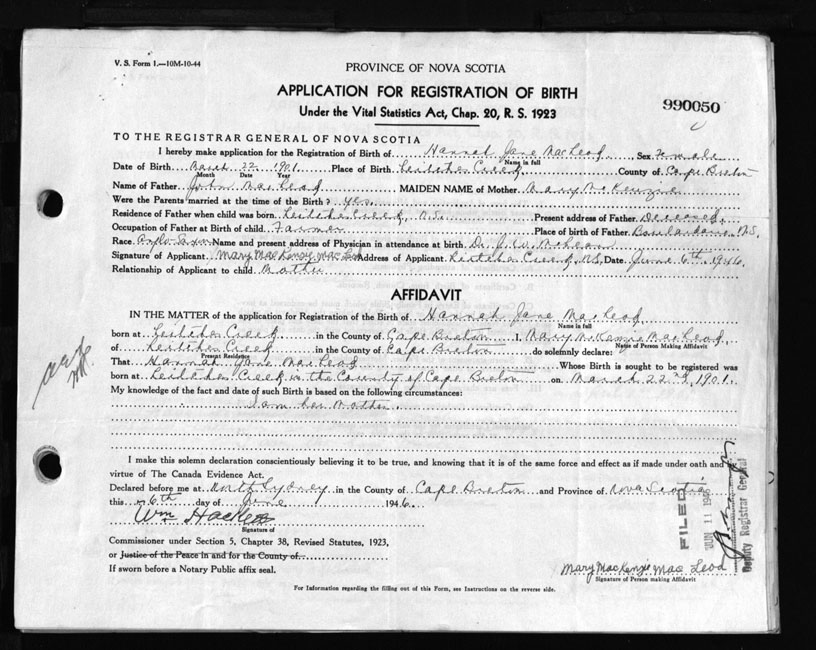 V. S. Form 1.—10M-10-44
PROVINCE OF NOVA SCOTIA
APPLICATION FOR REGISTRATION OF BIRTH
Under the Vital Statistics Act, Chap. 20, R. S. 1923
990050
TO THE REGISTRAR GENERAL OF NOVA SCOTIA
I hereby make application for the Registration of Birth of Hannah Jane MacLeod, Sex Female
Name in full
Date of Birth March 22 1901 Place of Birth Leitches Creek County of Cape Breton
Month Day Year
Name of Father John MacLeod MAIDEN NAME of Mother Mary McKenzie
Were the Parents married at the time of the Birth? yes.
Residence of Father when child was born Leitches Creek, N.S. Present address of Father Deceased
Occupation of Father at Birth of child Farmer Place of birth of Father Boularderie N.S.
Race Anglo Saxon Name and present address of Physician in attendance at birth Dr. J. W. McLean
Signature of Applicant Mary MacKenzie MacLeod Address of Applicant Leitches Creek, N.S. Date June 6th 1946
Relationship of Applicant to child Mother
AFFIDAVIT
IN THE MATTER of the application for Registration of the Birth of Hannah Jane MacLeod
Name in full
born at Leitches Creek in the County of Cape Breton I, Mary McKenzie MacLeod
Name of Person Making Affidavit
of Leitches Creek in the County of Cape Breton do solemnly declare:
Present Residence
That Hannah Jane MacLeod Whose Birth is sought to be registered was
born at Leitches Creek in the County of Cape Breton on March 22nd, 1901.
My knowledge of the fact and date of such Birth is based on the following circumstances:
I am her Mother.
I make this solemn declaration conscientiously believing it to be true, and knowing that it is of the same force and effect as if made under oath and by
virtue of The Canada Evidence Act.
Declared before me at North Sydney in the County of Cape Breton and Province of Nova Scotia
this 6th day of June 1946.
Wm
Signature of
Commissioner under Section 5, Chapter 38, Revised Statutes, 1923,
or Justice of the Peace in and for the County of
If sworn before a Notary Public affix seal.
FILED
JUN 11 1946
Deputy Registrar General
Mary MacKenzie MacLeod
Signature of Person making Affidavit
For Information regarding the filling out of this Form, see Instructions on the reverse side.